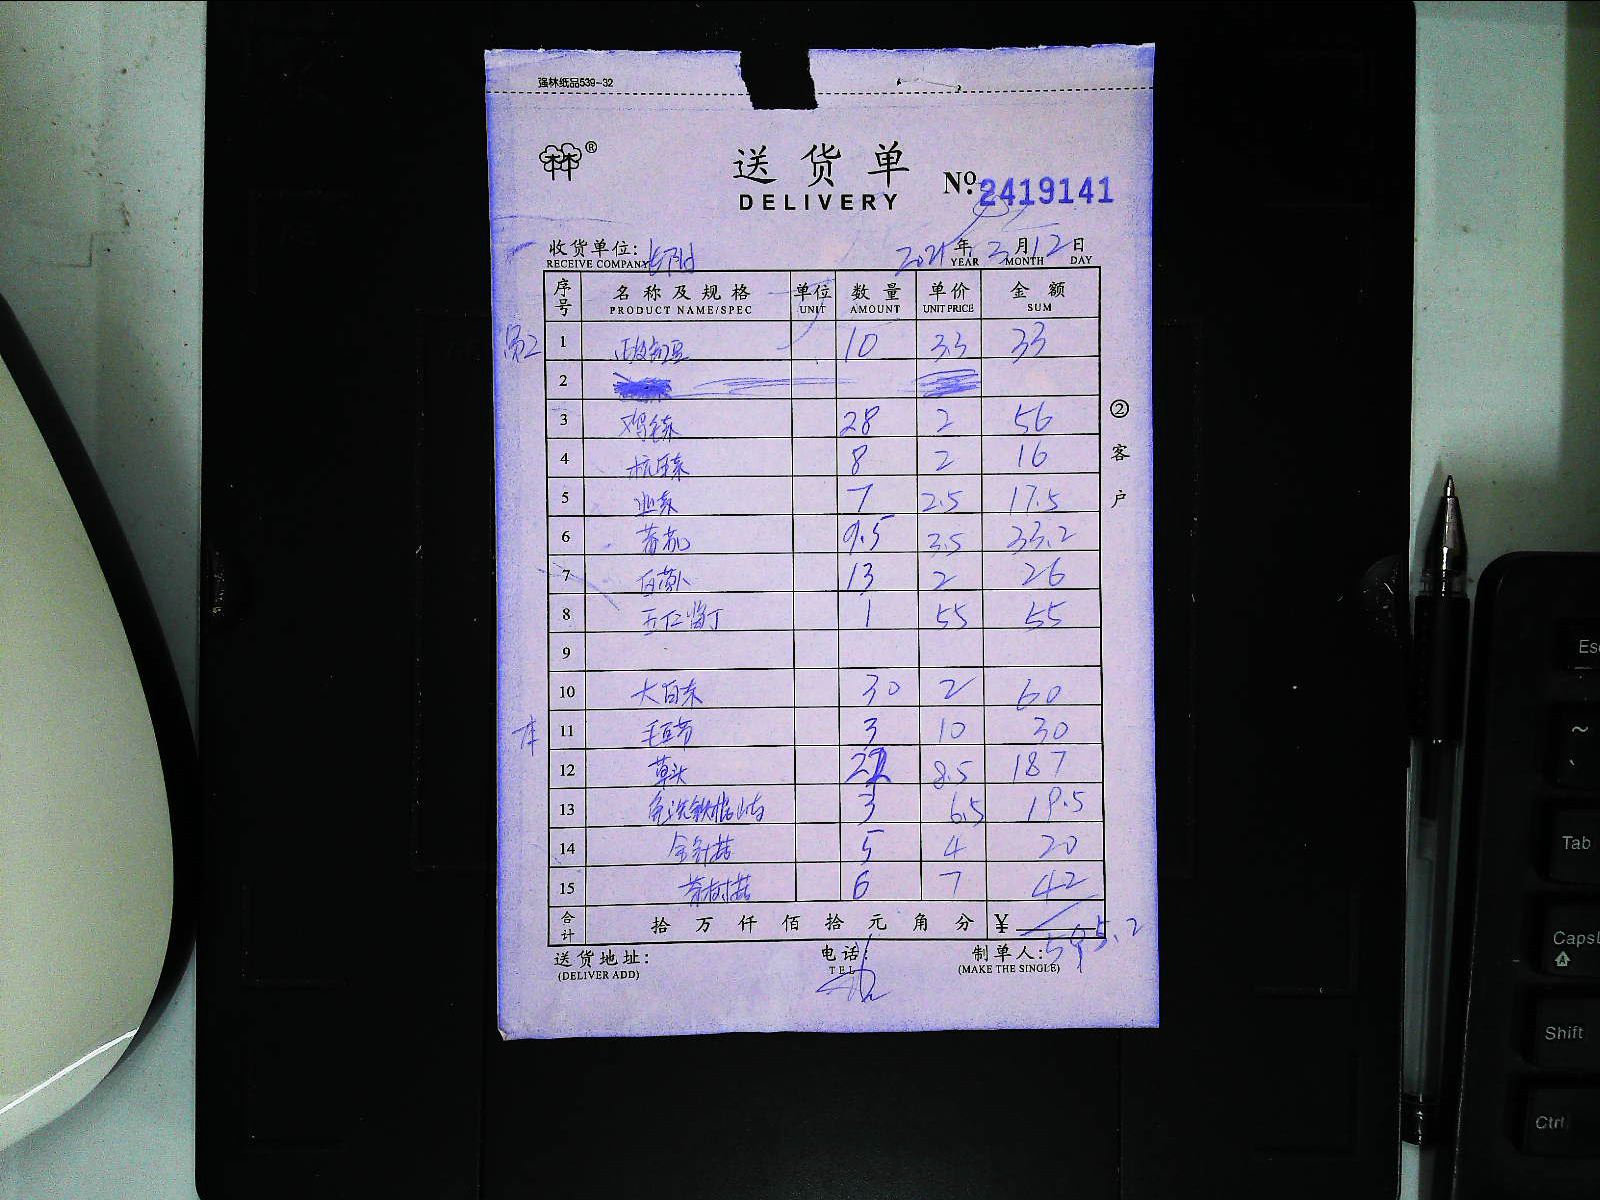 强林纸品539-32
林®
送货单
DELIVERY
No. 2419141
收货单位:
RECEIVE COMPANY
2021年3月12日
YEAR MONTH DAY
序号 名称及规格 单位 数量 单价 金额
PRODUCT NAME/SPEC UNIT AMOUNT UNIT PRICE SUM
1 10 3.3 33
2
3 鸡毛菜 28 2 56
4 杭白菜 8 2 16
5 7 2.5 17.5
6 蕃茄 9.5 3.5 33.2
7 白萝卜 13 2 26
8 五仁酱丁 1 55 55
9
10 大白菜 30 2 60
11 毛豆节 3 10 30
12 草头 22 8.5 187
13 3 6.5 19.5
14 金针菇 5 4 20
15 茶树菇 6 7 42
合计 拾万仟佰拾元角分 ¥ 595.2
②客户
送货地址: 电话: 制单人:
(DELIVER ADD) TEL (MAKE THE SINGLE)
Esc
~
Tab
Caps
Shift
Ctrl